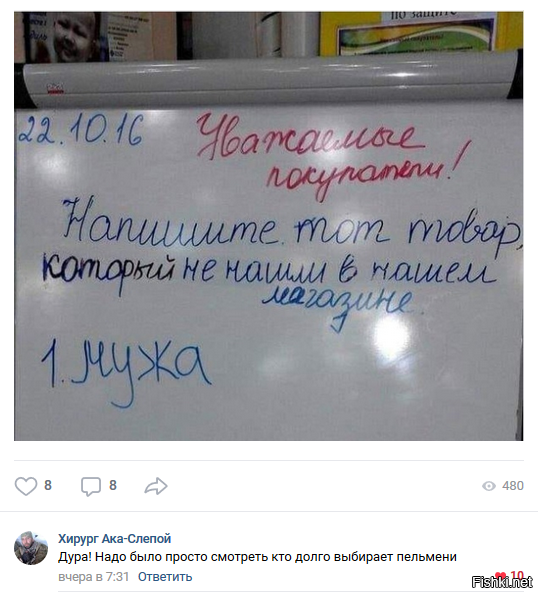 по защите
22.10.16
Уважаемые
покупатели!
Напишите тот товар,
который не нашли в нашем
магазине.
1. мужа
8
8
480
Хирург Ака-Слепой
Дура! Надо было просто смотреть кто долго выбирает пельмени
вчера в 7:31 Ответить
10
Fishki.net